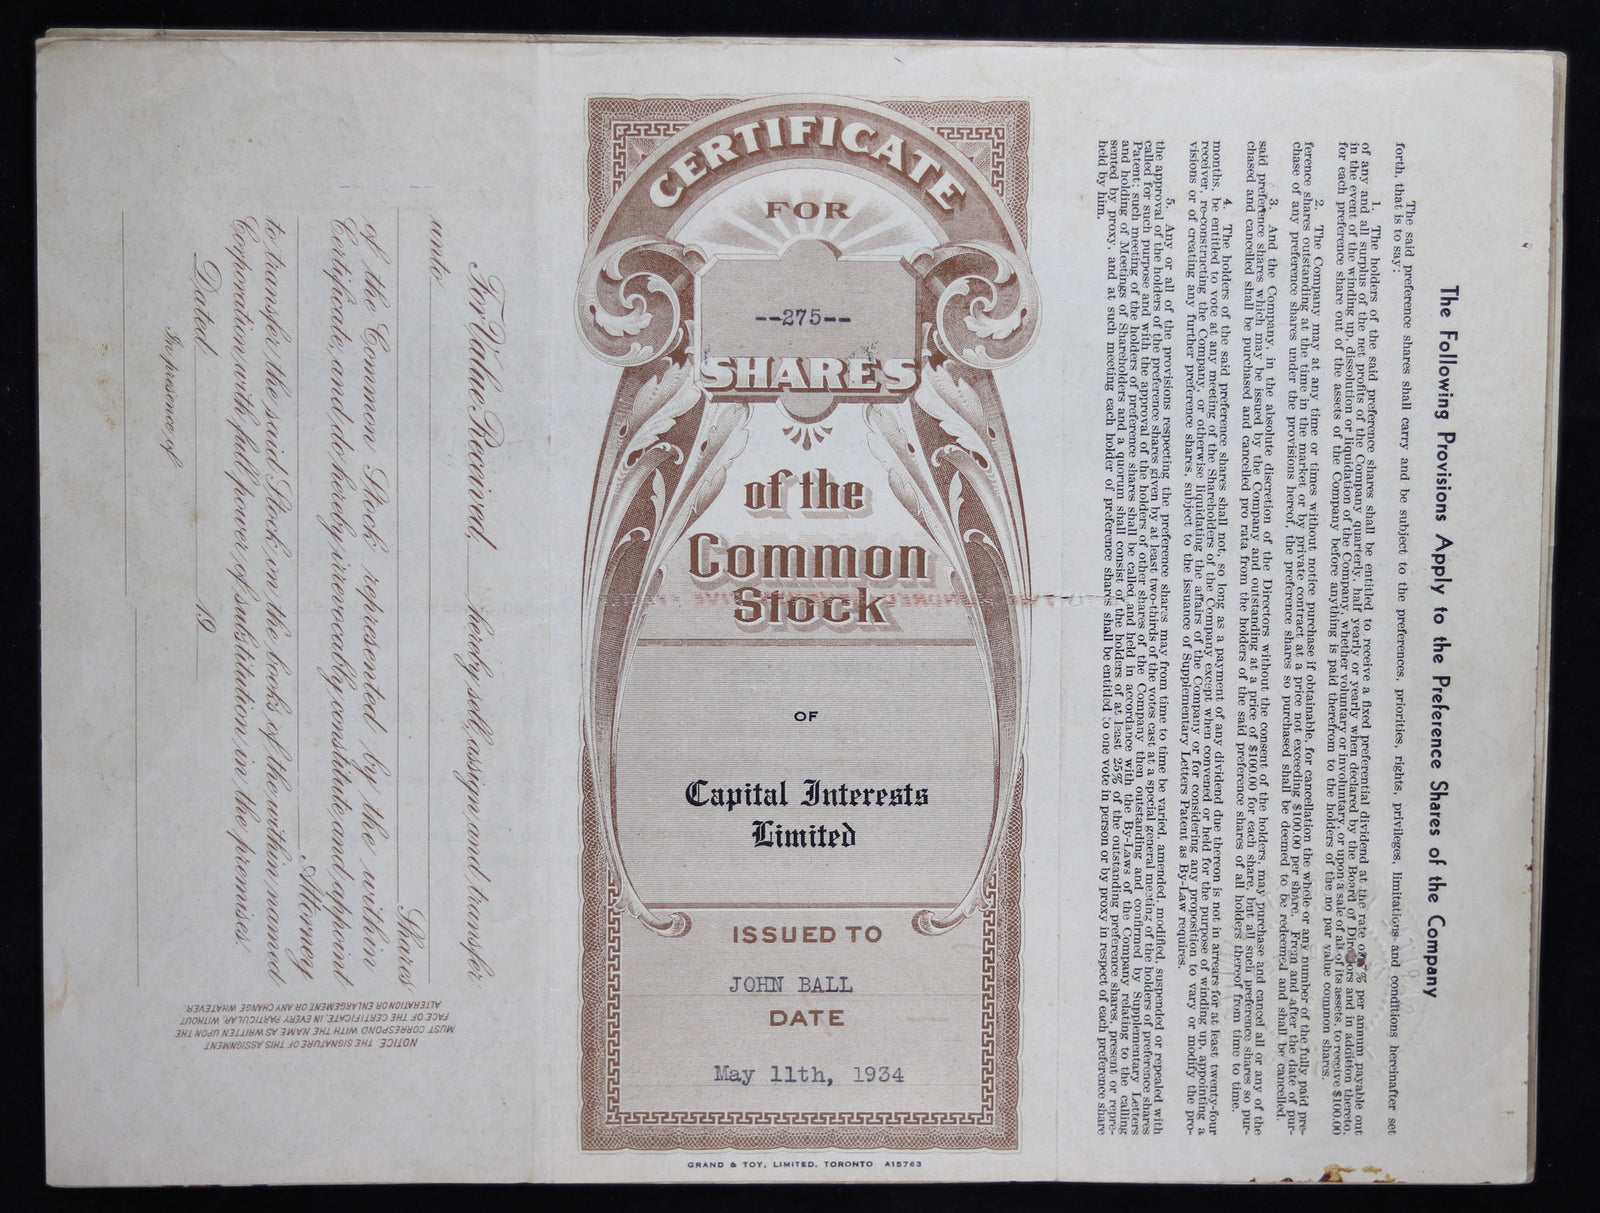 CERTIFICATE
FOR
--275--
SHARES
of the
Common
Stock
OF
Capital Interests
Limited
ISSUED TO
JOHN BALL
DATE
May 11th, 1934
GRAND & TOY, LIMITED, TORONTO A15763
For Value Received, hereby sell, assign and transfer
unto
Shares
of the Common Stock represented by the within
Certificate, and do hereby irrevocably constitute and appoint
Attorney
to transfer the said Stock on the books of the within named
Corporation with full power of substitution in the premises.
Dated 19
In presence of
NOTICE. THE SIGNATURE OF THIS ASSIGNMENT
MUST CORRESPOND WITH THE NAME AS WRITTEN UPON THE
FACE OF THE CERTIFICATE, IN EVERY PARTICULAR, WITHOUT
ALTERATION OR ENLARGEMENT OR ANY CHANGE WHATEVER.
The Following Provisions Apply to the Preference Shares of the Company
The said preference shares shall carry and be subject to the preferences, priorities, rights, privileges, limitations and conditions hereinafter set
forth, that is to say:
1. The holders of the said preference shares shall be entitled to receive a fixed preferential dividend at the rate of 7% per annum payable out
of any and all surplus of the net profits of the Company quarterly half yearly or yearly when declared by the Board of Directors and in addition thereto,
in the event of the winding up, dissolution or liquidation of the Company, whether voluntary or involuntary, or upon a sale of all of its assets, to receive $100.00
for each preference share out of the assets of the Company before anything is paid therefrom to the holders of the no par value common shares.
2. The Company may at any time or times without notice purchase if obtainable, for cancellation the whole or any number of the fully paid pre-
ference shares outstanding at the time in the market or by private contract at a price not exceeding $100.00 per share. From and after the date of pur-
chase of any preference shares under the provisions hereof, the preference shares so purchased shall be deemed to be redeemed and shall be cancelled.
3. And the Company, in the absolute discretion of the Directors without the consent of the holders, may purchase and cancel all or any of the
said preference shares which may be issued by the Company and outstanding at a price of $100.00 for each share, but all such preference shares so pur-
chased and cancelled shall be purchased and cancelled pro rata from the holders of the said preference shares of all holders thereof from time to time.
4. The holders of the said preference shares shall not, so long as a payment of any dividend due thereon is not in arrears for at least twenty-four
months, be entitled to vote at any meeting of the Shareholders of the Company except when convened or held for the purpose of winding up, appointing a
receiver, re-constructing the Company, or otherwise liquidating the affairs of the Company or for considering any proposition to vary or modify the pro-
visions or of creating any further preference shares, subject to the issuance of Supplementary Letters Patent as By-Law requires.
5. Any or all of the provisions respecting the preference shares may from time to time be varied, amended, modified, suspended or repealed with
the approval of the holders of the preference shares given by at least two-thirds of the votes cast at a special general meeting of the holders of preference shares
called for such purpose and with the approval of the holders of other shares of the Company then outstanding and confirmed by Supplementary Letters
Patent; such meeting of the holders of preference shares shall be called and held in accordance with the By-Laws of the Company relating to the calling
and holding of Meetings of Shareholders and a quorum shall consist of the holders of at least 25% of the outstanding preference shares, present or repre-
sented by proxy, and at such meeting each holder of preference shares shall be entitled to one vote in person or by proxy in respect of each preference share
held by him.